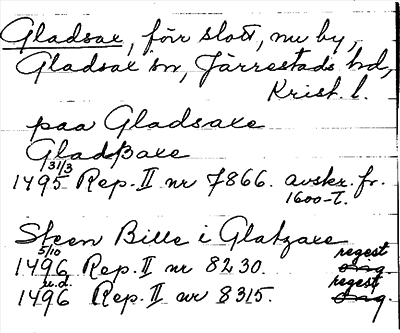 Gladsax, förr slott, nu by,
Gladsax sn, Järrestads hd,
Krist. l.
paa Gladsaxe
Gladßaxe
31/3
1495 Rep. II nr 7866. avskr. fr.
1600-t.
Steen Bille i Glatzaxe
5/10 regest
1496 Rep. II nr 8230. orig
u.d. regest
1496 Rep. II nr 8315. orig.